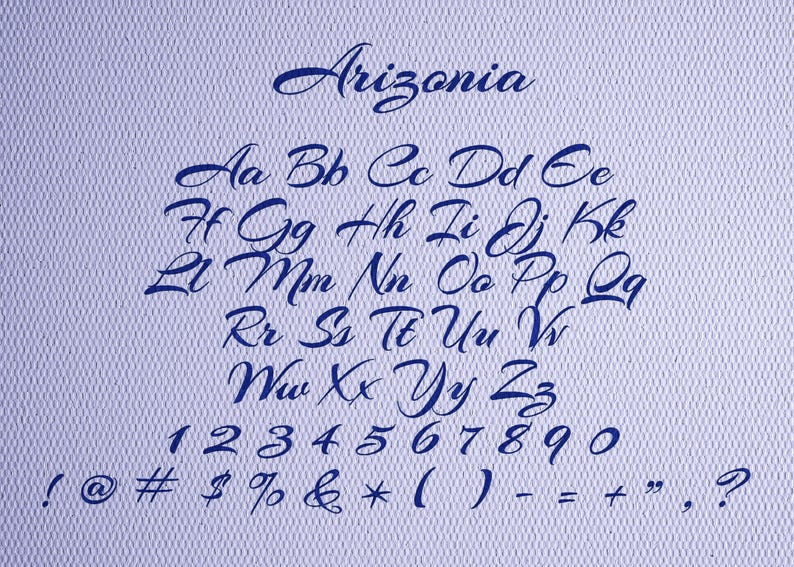 Arizonia
Aa Bb Cc Dd Ee
Ff Gg Hh Ii Jj Kk
Ll Mm Nn Oo Pp Qq
Rr Ss Tt Uu Vv
Ww Xx Yy Zz
1 2 3 4 5 6 7 8 9 0
! @ # $ % & * ( ) - = + " , ?